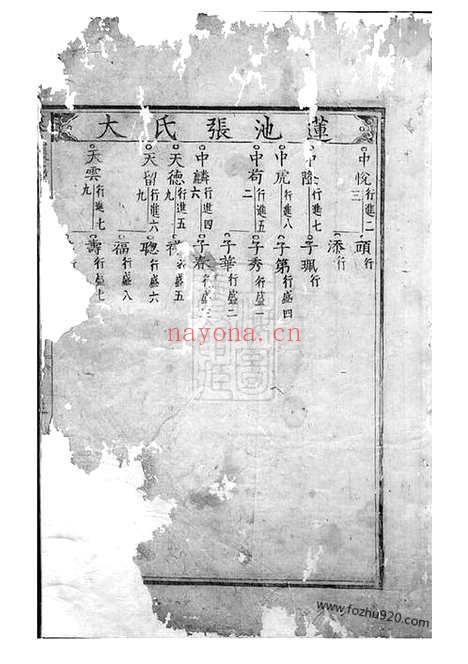 蓮池張氏大
中悅行進二
三
中隆行進七
中虎行進八
中荀行進五
二
中麟行進四
六
天德行進五
九
天留行進六
九
天雲行進七
九
頭行
添行
子珮行
子第行盛四
子秀行盛一
子華行盛二
子春行盛三
行盛五
聰行盛六
福行盛八
壽行盛七
nayona.cn
www.fozhu920.com